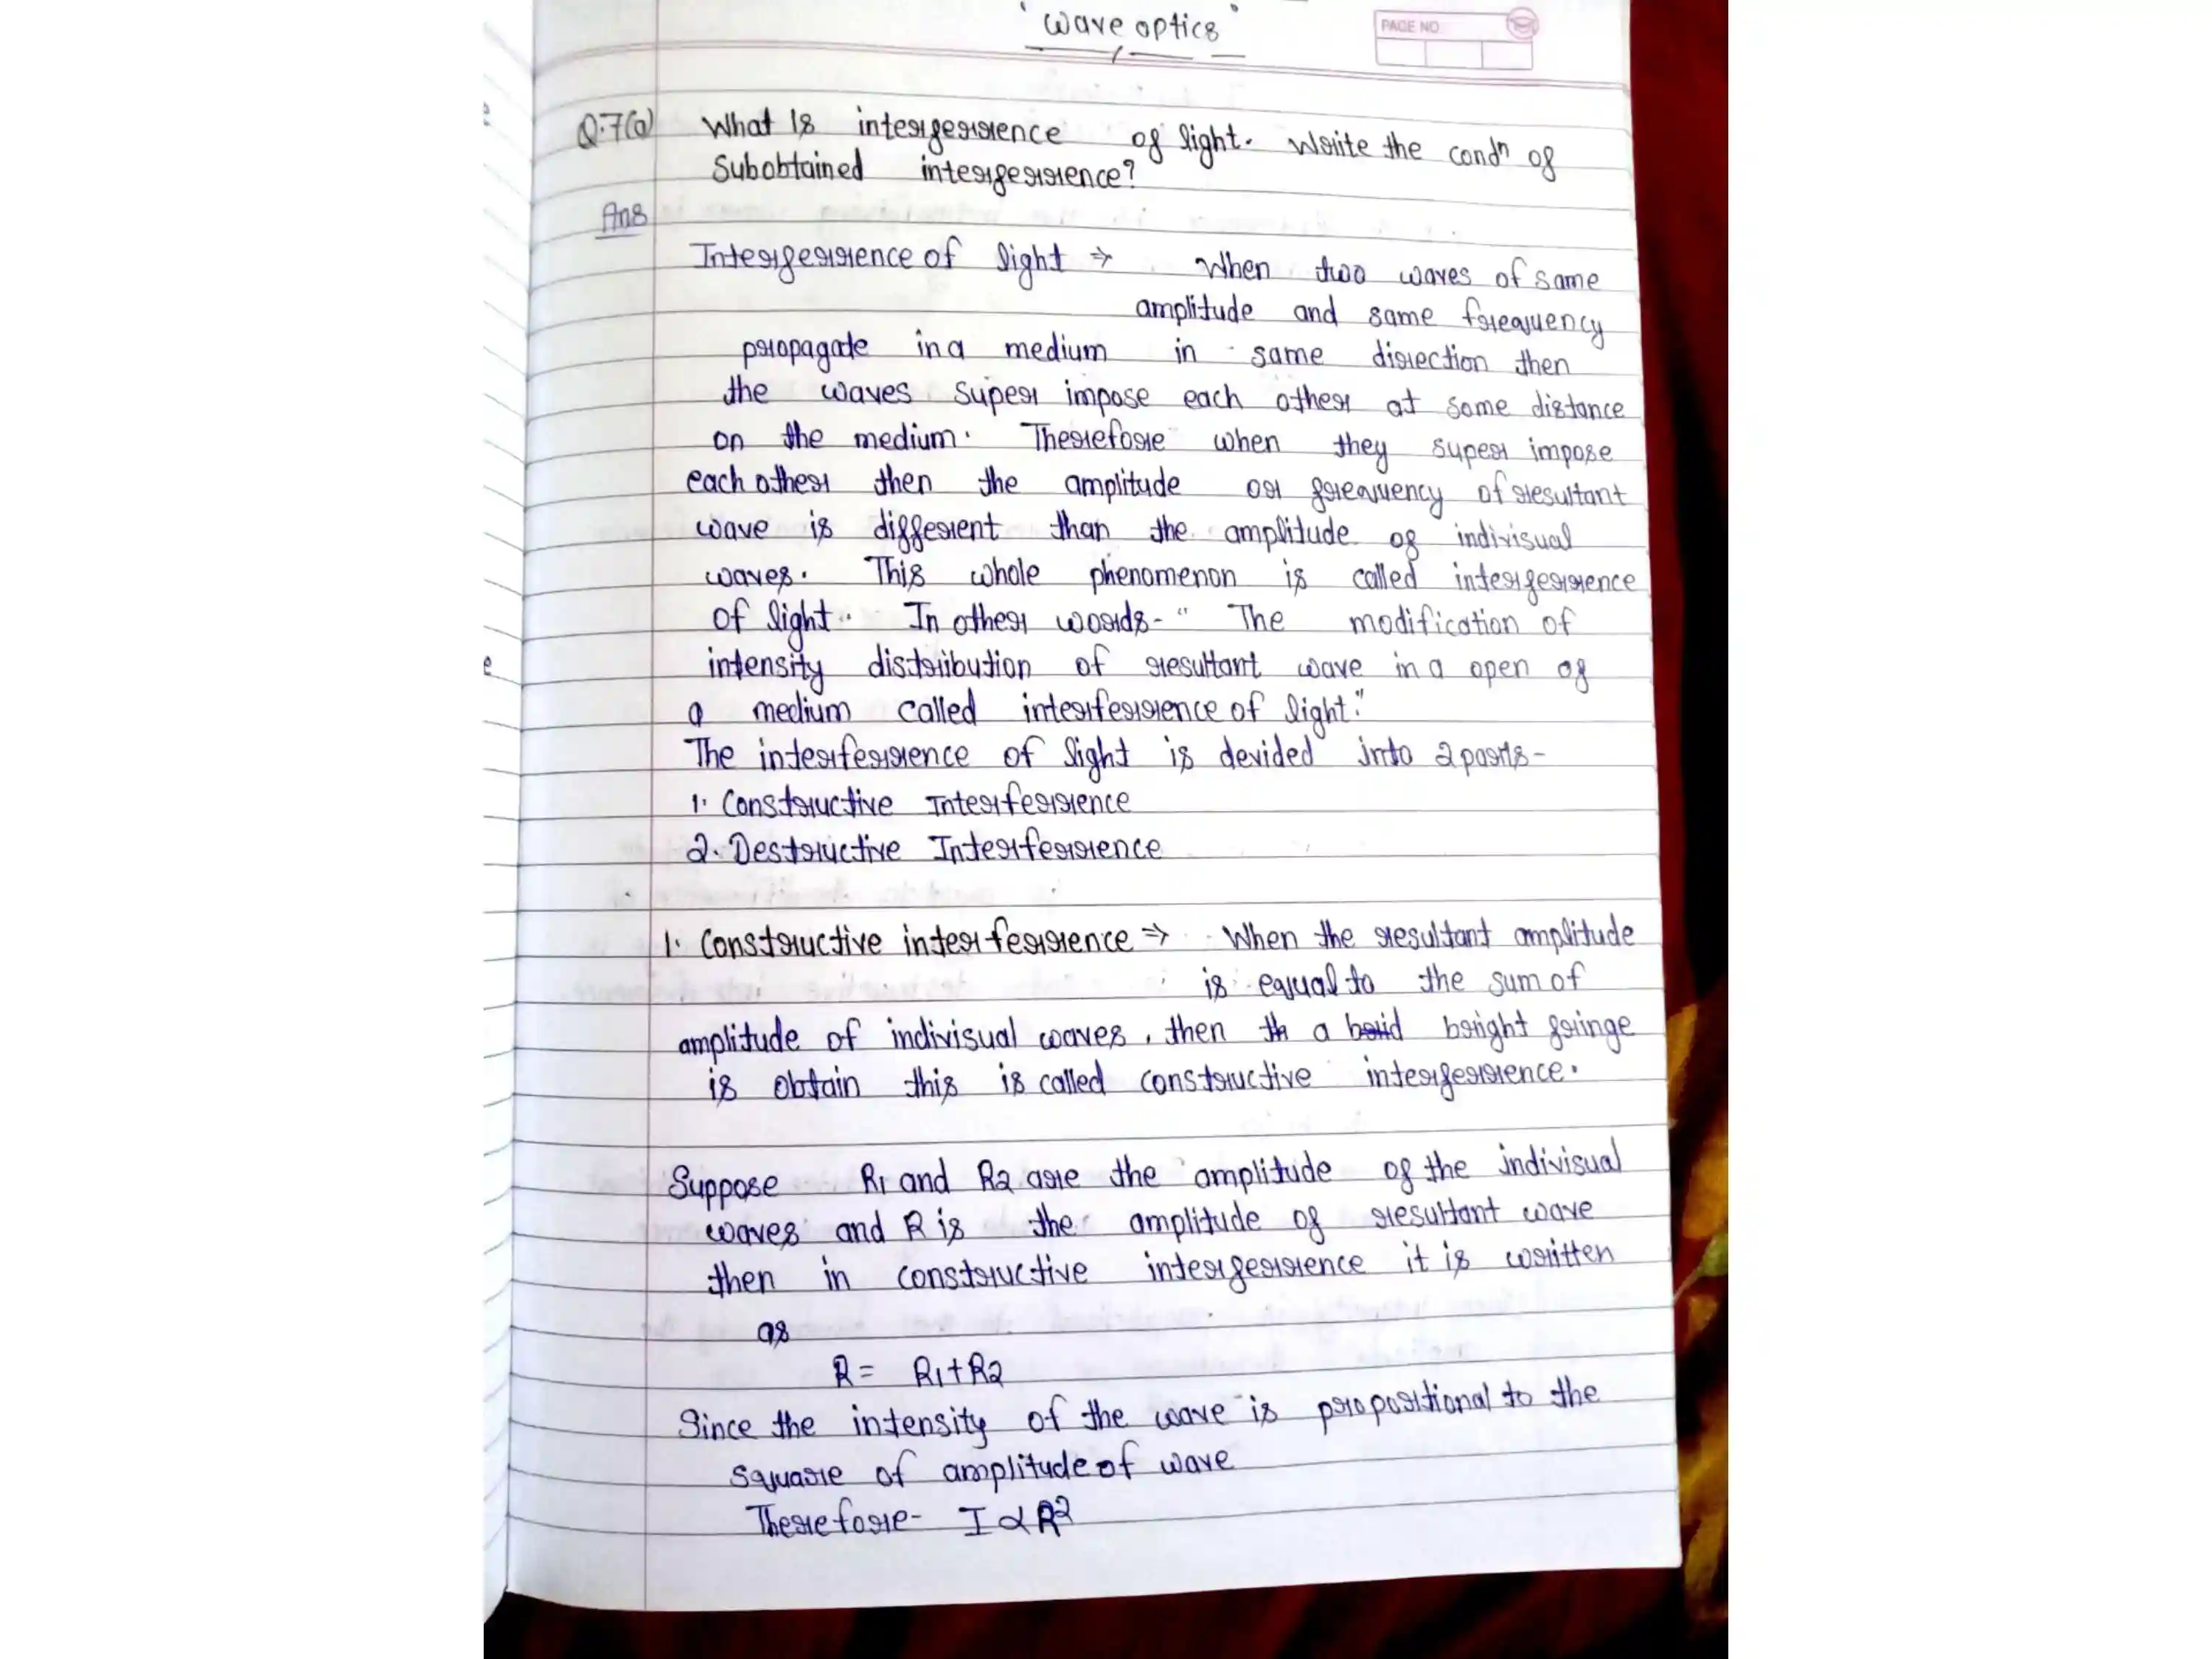 "Wave optics"
PAGE NO
Q.7(a) What is interference of light. Write the condn of
Subobtained interference?
Ans
Interference of light ⇒ When two waves of same
amplitude and same frequency
propagate in a medium in same direction then
the waves super impose each other at some distance
on the medium. Therefore when they super impose
each other then the amplitude or frequency of resultant
wave is different than the amplitude of indivisual
waves. This whole phenomenon is called interferrence
of light. In other words- " The modification of
intensity distribution of resultant wave in a open of
a medium called interferrence of light."
The interferrence of light is devided into 2 parts-
1. Constructive Interferrence
2. Destructive Interferrence
1. Constructive interferrence ⇒ When the resultant amplitude
is equal to the sum of
amplitude of indivisual waves, then th a braid bright fringe
is obtain this is called constructive interferrence.
Suppose R1 and R2 are the amplitude of the indivisual
waves and R is the amplitude of resultant wave
then in constructive interferrence it is written
as
R = R1+R2
Since the intensity of the wave is proportional to the
square of amplitude of wave
Therefore- I ∝ R²